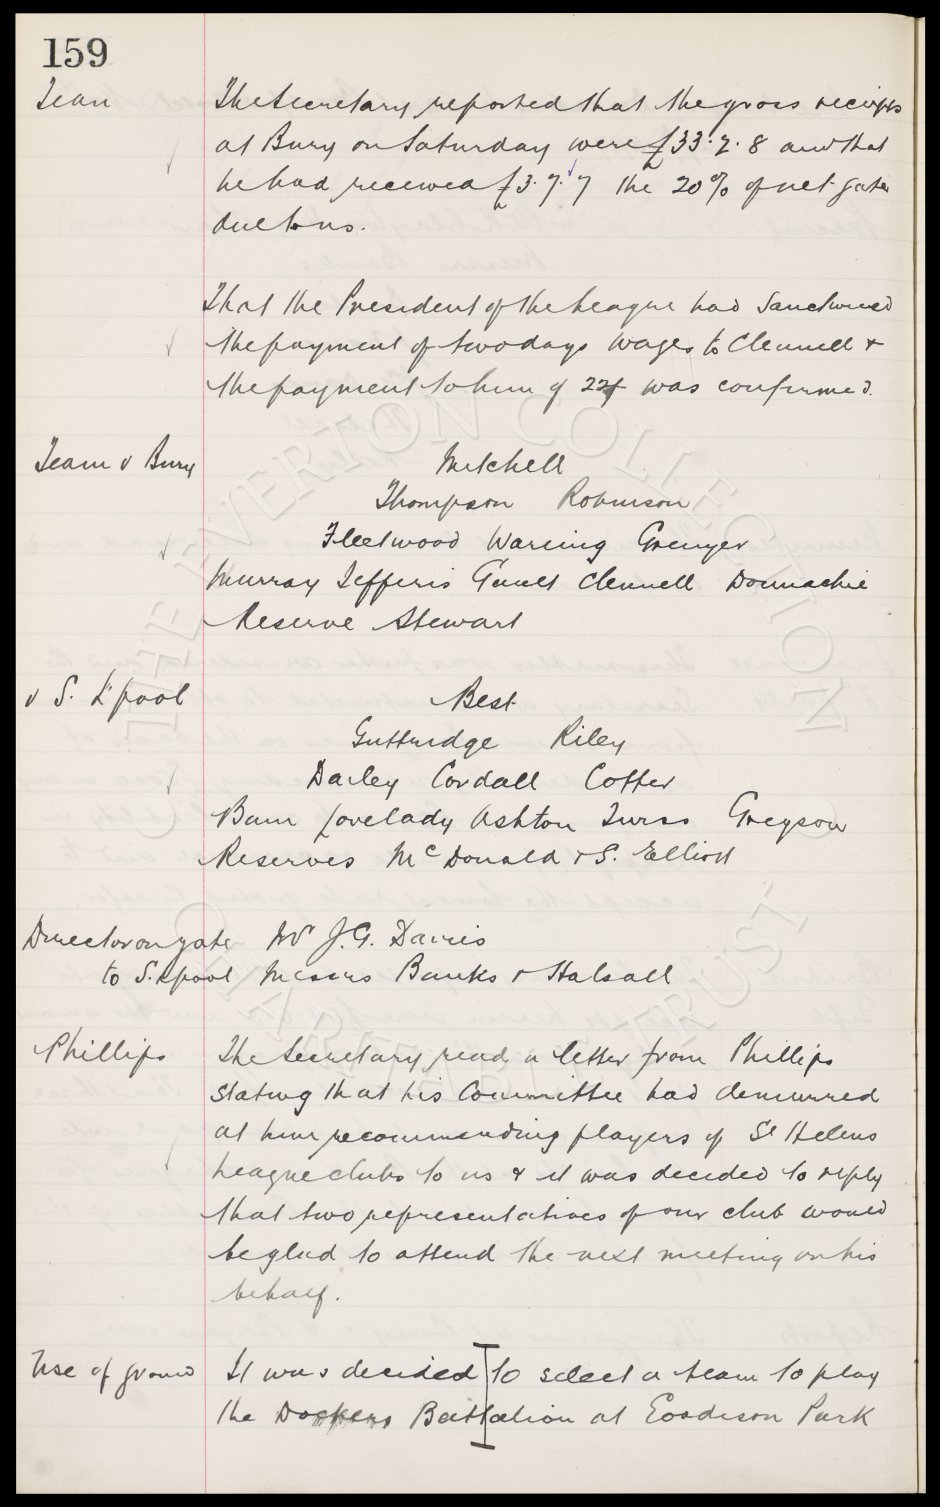 159
Team The Secretary reported that the gross receipts
at Bury on Saturday were £33.7.8 and that
he had received £3.7.7 the 20% of net gate
ductions.
That the President of the League had sanctioned
the payment of two days wages to Clennell &
the payment to him of was confirmed.
Team v Bury Mitchell
Thompson Robinson
Fleetwood Wareing Grenyer
Murray Jefferis Gault Clennell Donnachie
Reserve Stewart
v S. L'pool Best
Guttridge Riley
Darley Cordall Cotter
Bain Lovelady Ashton Greyson
Reserves McDonald & S. Elliott
Director on gate Mr J.G. Davies
to S. Lpool Messrs Banks & Halsall
Phillips The Secretary read a letter from Phillips
stating that his Committee had demurred
at him recommending players of St Helens
League clubs to us & it was decided to reply
that two representatives of our club would
be glad to attend the next meeting on his
behalf.
Use of ground It was decided to select a team to play
the Dockers Battalion at Goodison Park
THE EVERTON COLLECTION
CHARITABLE TRUST